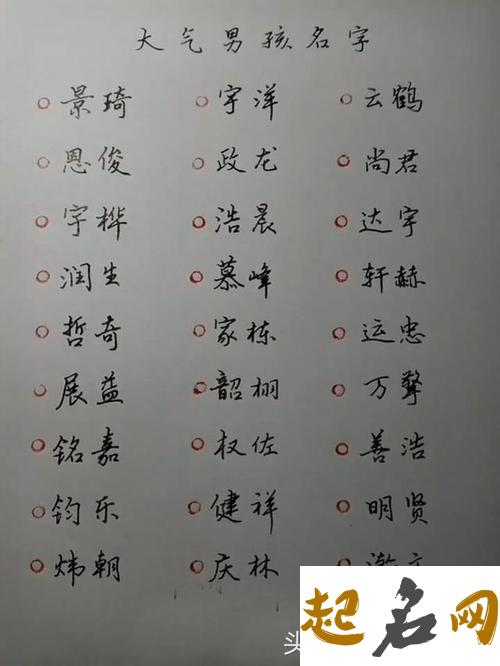 大气男孩名字
景琦 宇洋 云鹤
恩俊 政龙 尚君
宇桦 浩晨 达宇
润生 慕峰 轩赫
哲奇 家栋 运忠
展益 韶栩 万擎
铭嘉 权佐 善浩
钧乐 健祥 明贤
炜朝 庆林
起名网
头